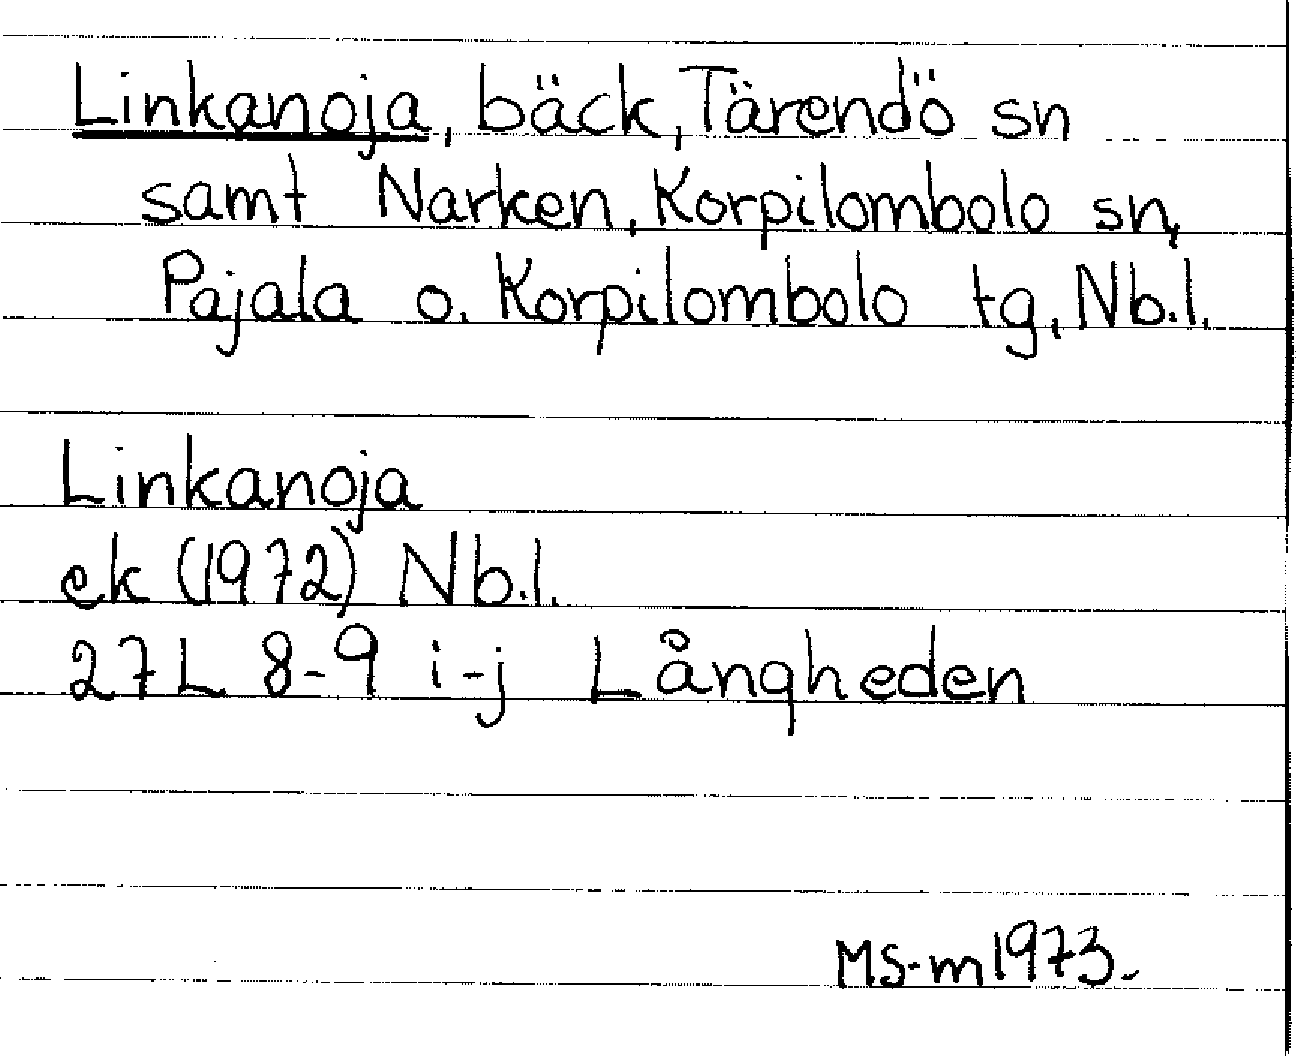 Linkanoja, bäck, Tärendö sn
samt Narken, Korpilombolo sn,
Pajala o. Korpilombolo tg, Nb.l.
Linkanoja
ek (1972) Nb.l.
27L 8-9 i-j Långheden
MS-m 1973.